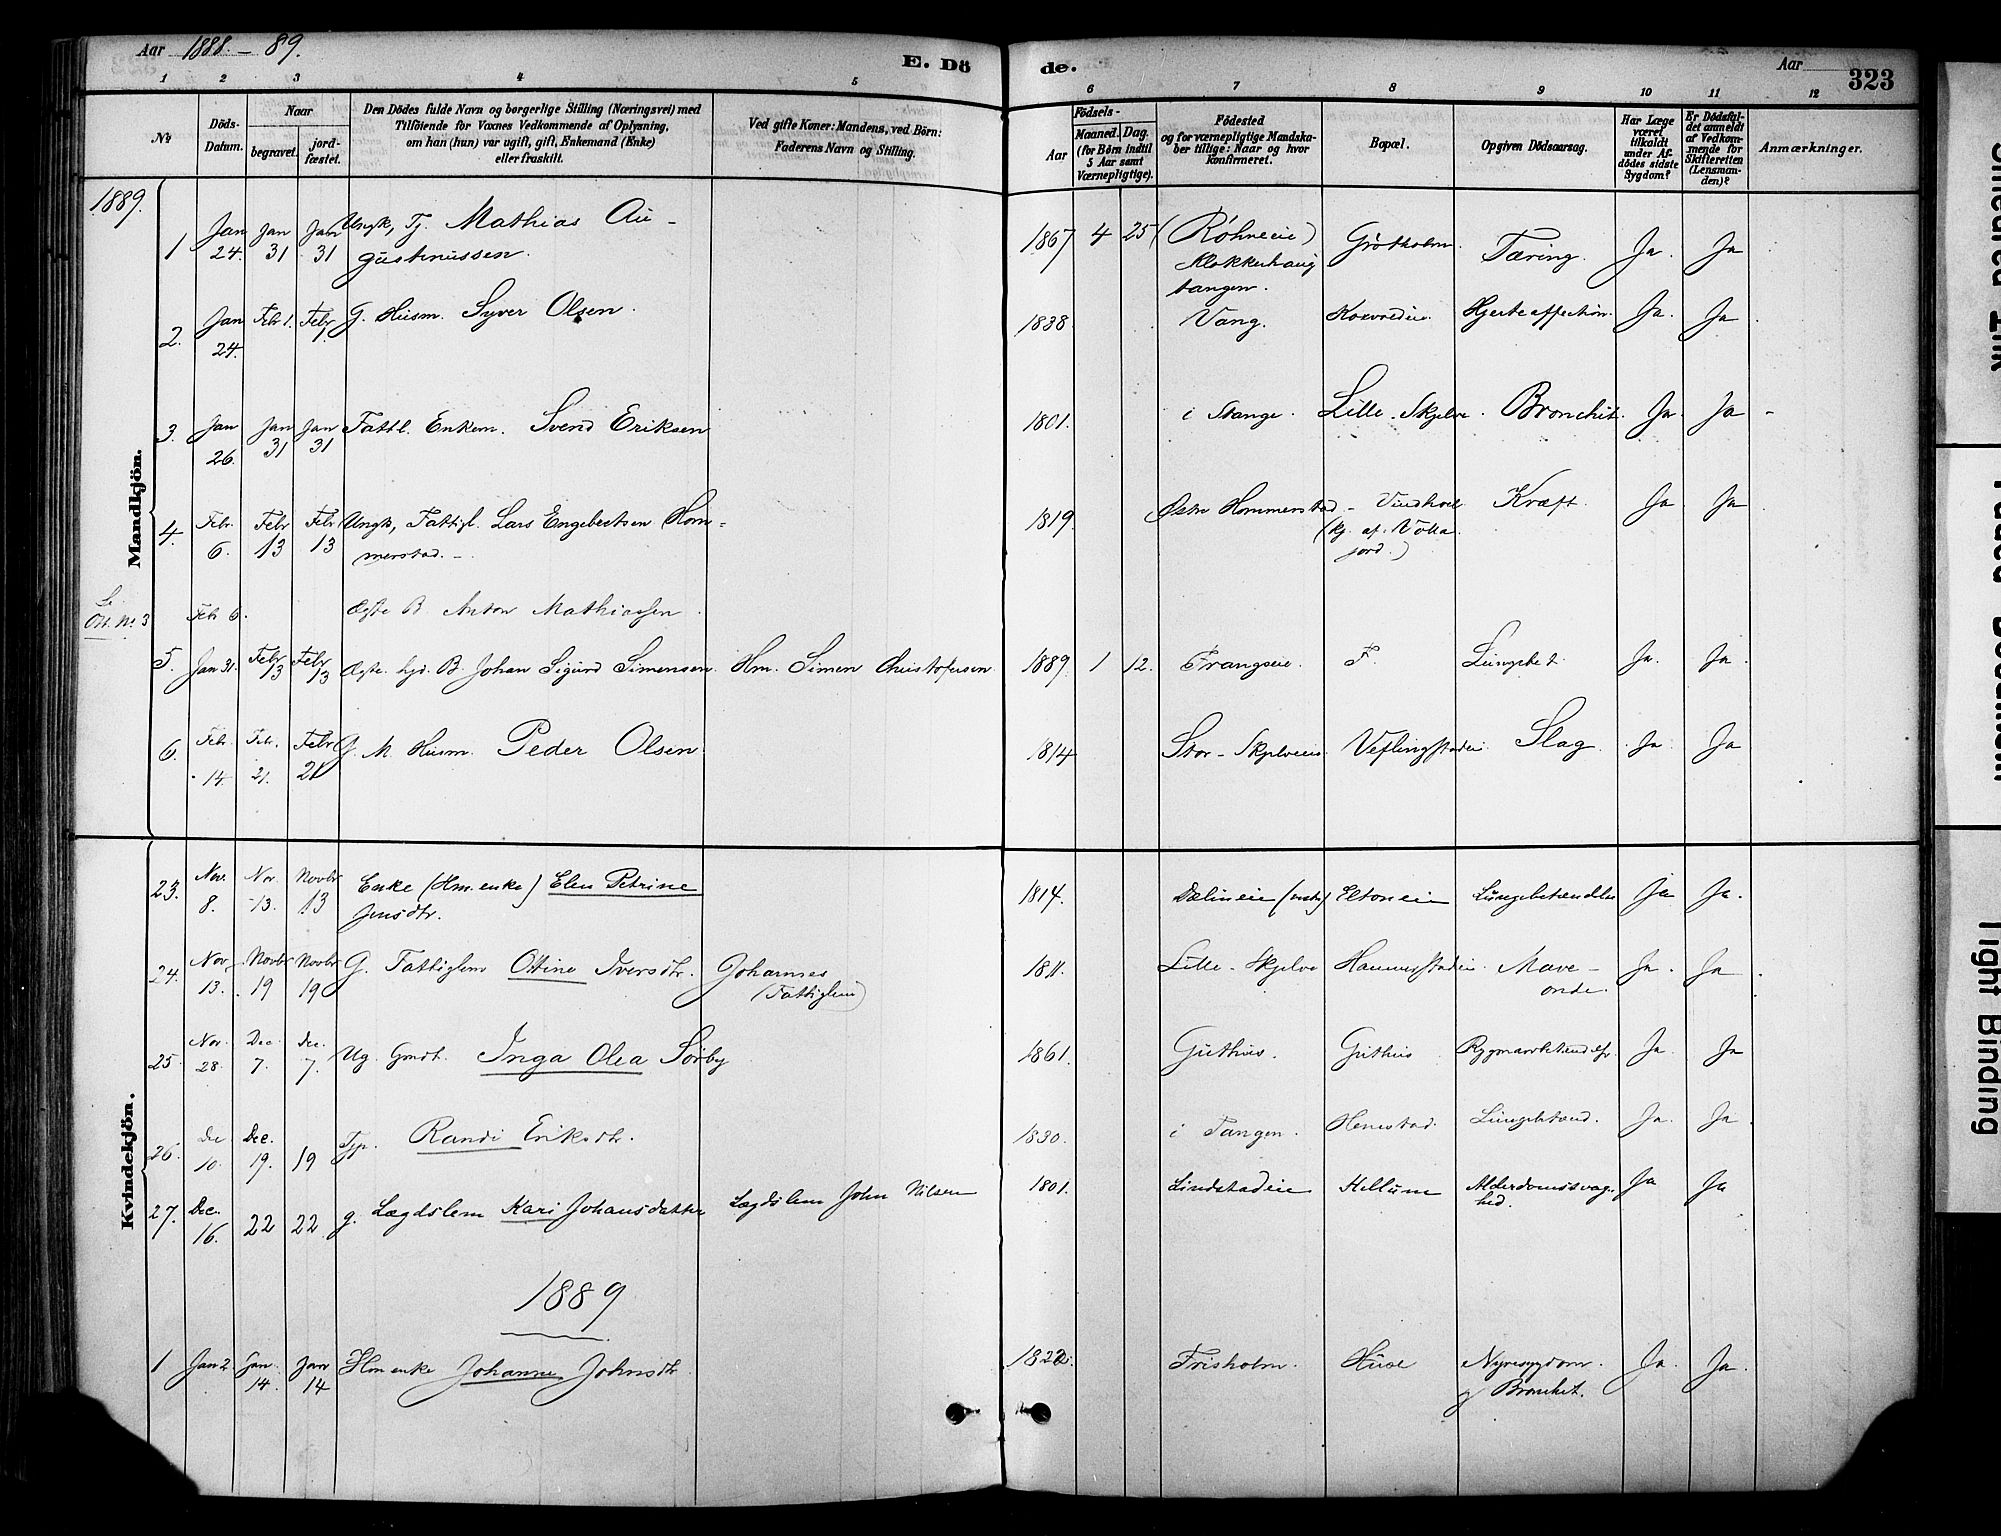 Aar 1888 - 89.
E. Dö de.
Aar 323
1 2 3 4 5 6 7 8 9 10 11 12
No
Döds-Datum.
Naar
begravet. jord-fæstet.
Den Dödes fulde Navn og borgerlige Stilling (Næringsvei) med
Tilföiende for Voxnes Vedkommende af Oplysning,
om han (hun) var ugift, gift, Enkemand (Enke)
eller fraskilt.
Ved gifte Koner: Mandens, ved Börn:
Faderens Navn og Stilling.
Födsels-
Aar Maaned. Dag.
(for Börn indtil
5 Aar samt
Værnepligtige).
Födested
og for værnepligtige Mandska-
ber tillige: Naar og hvor
Konfirmeret.
Bopæl.
Opgiven Dödsaarsag.
Har Læge
været
tilkaldt
under Af-
dödes sidste
Sygdom?
Er Dödsfal-
det anmeldt
af Vedkom-
mende for
Skifteretten
(Lensman-
den)?
Anmærkninger.
1889.
Mandkjön.
1 Jan 24. Jan 31 Jan 31 Ungk, Tj. Mathias Au-
gustinussen. 1867 4 25 (Röhneeie) Klokkerhaug tangen. Grötholm. Tæring. Ja. Ja
2. Jan 24. Febr 1. Febr 1 G. Husm. Syver Olsen. 1838. Vang. Hjerteaffection. Ja. Ja
3. Jan 26. Jan 31 Jan 31 Fattl. Enkem. Svend Eriksen 1801. i Stange. Lille-Skjelve. Bronchit. Ja. Ja
4. Febr. 6. Febr 13 Febr 13 Ungk, Fattigl. Lars Engebretsen Hom-
merstad. 1819 Östre Hommerstad Kræft. Ja Ja
No. 3 Febr 6. Ægte B Anton Mathiassen
5. Jan 31. Febr 13 Febr 13 Ægte hjd. B. Johan Sigurd Simensen. Hm. Simen Christofersen 1889 1 12. Frangseie. F. Lungebet. Ja. Ja.
6. Febr. 14. Febr. 21. Febr 21 G. M Husm. Peder Olsen. 1814 Stor-Skjelveeie. Veflingstadeie Slag. Ja. Ja
Kvindekjön.
23. Nov. 8. Nov. 13. Novbr 13 Enke (Hm. enke) Elen Petrine
Jensdtr. 1814. Dælineie Eltoneie Lungebetændelse Ja Ja.
24. Nov. 13. Novbr 19 Novbr 19 G. Fattiglem Ottine Iversdtr. Johannes
(Fattiglem) 1811. Lille-Skjelve Hammerstadeie. Mave-
onde. Ja. Ja
25. Nov. 28. Dec. 7. Dec. 7. Ug. Gmdt. Inga Olea Sörby 1861. Guthus. Guthus Rygmarvbetændelse Ja. Ja
26. Dec 10. Dec. 19. 19 Tjp. Randi Eriksdtr. 1830. i Tangen. Henestad. Lungebetænd. Ja. Ja
27. Dec. 16. 22 22 g. Lægdslem Kari Johansdatter Lægdslem John Nilsen 1801. Lindstadeie Hellum Alderdomssvag-
hed. Ja Ja
1889
1 Jan 2 Jan. 14. Jan 14 Hm enke Johanne Johnsdtr. 1822. Frisholm. Huse Nyresygdom.
g Bronchit. Ja. Ja.
Faded Document
Tight Binding